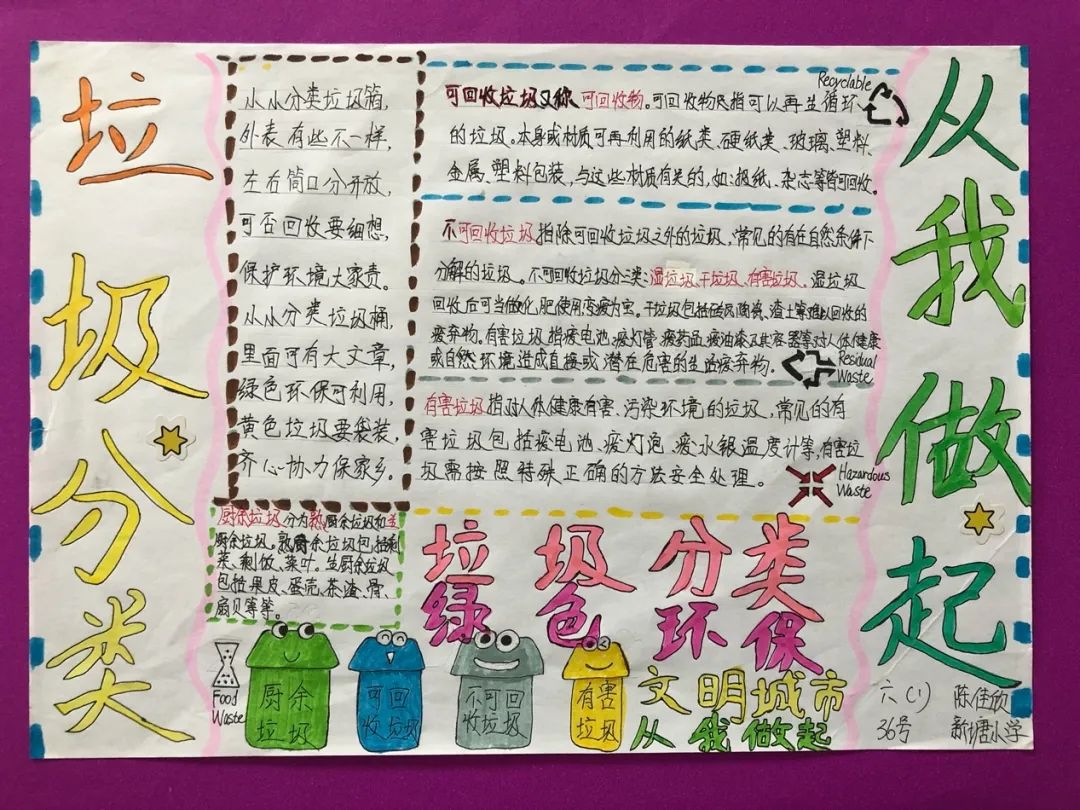 垃圾分类
小小分类垃圾箱,
外表有些不一样,
左右筒口分开放,
可否回收要细想,
保护环境大家责。
小小分类垃圾桶,
里面可有大文章,
绿色环保可利用,
黄色垃圾要袋装,
齐心协力保家乡。
厨余垃圾分为熟厨余垃圾和生
厨余垃圾。熟厨余垃圾包括剩
菜、剩饭、菜叶。生厨余垃圾
包括果皮、蛋壳、茶渣、骨、
扇贝等等。
Recyclable
可回收垃圾又称可回收物。可回收物是指可以再生循环
的垃圾。本身或材质可再利用的纸类、硬纸类、玻璃、塑料、
金属、塑料包装,与这些材质有关的,如:报纸、杂志等皆可回收。
不可回收垃圾指除可回收垃圾之外的垃圾,常见的有在自然条件下
分解的垃圾。不可回收垃圾分三类:湿垃圾、干垃圾、有害垃圾。湿垃圾
回收后可当做化肥使用变废为宝。干垃圾包括砖瓦陶瓷、渣土等难以回收的
废弃物。有害垃圾指废电池、废灯管、废药品、废油漆及其容器等对人体健康
或自然环境造成直接或潜在危害的生活废弃物。
Residual
Waste
有害垃圾指对人体健康有害、污染环境的垃圾,常见的有
害垃圾包括废电池、废灯泡、废水银温度计等,有害垃
圾需按照特殊正确的方法安全处理。
Hazardous
Waste
垃圾分类
绿色环保
Food
Waste
厨余
垃圾
可回
收垃圾
不可回
收垃圾
有害
垃圾
文明城市
从我做起
从我做起
六(1) 陈佳欣
36号 新塘小学